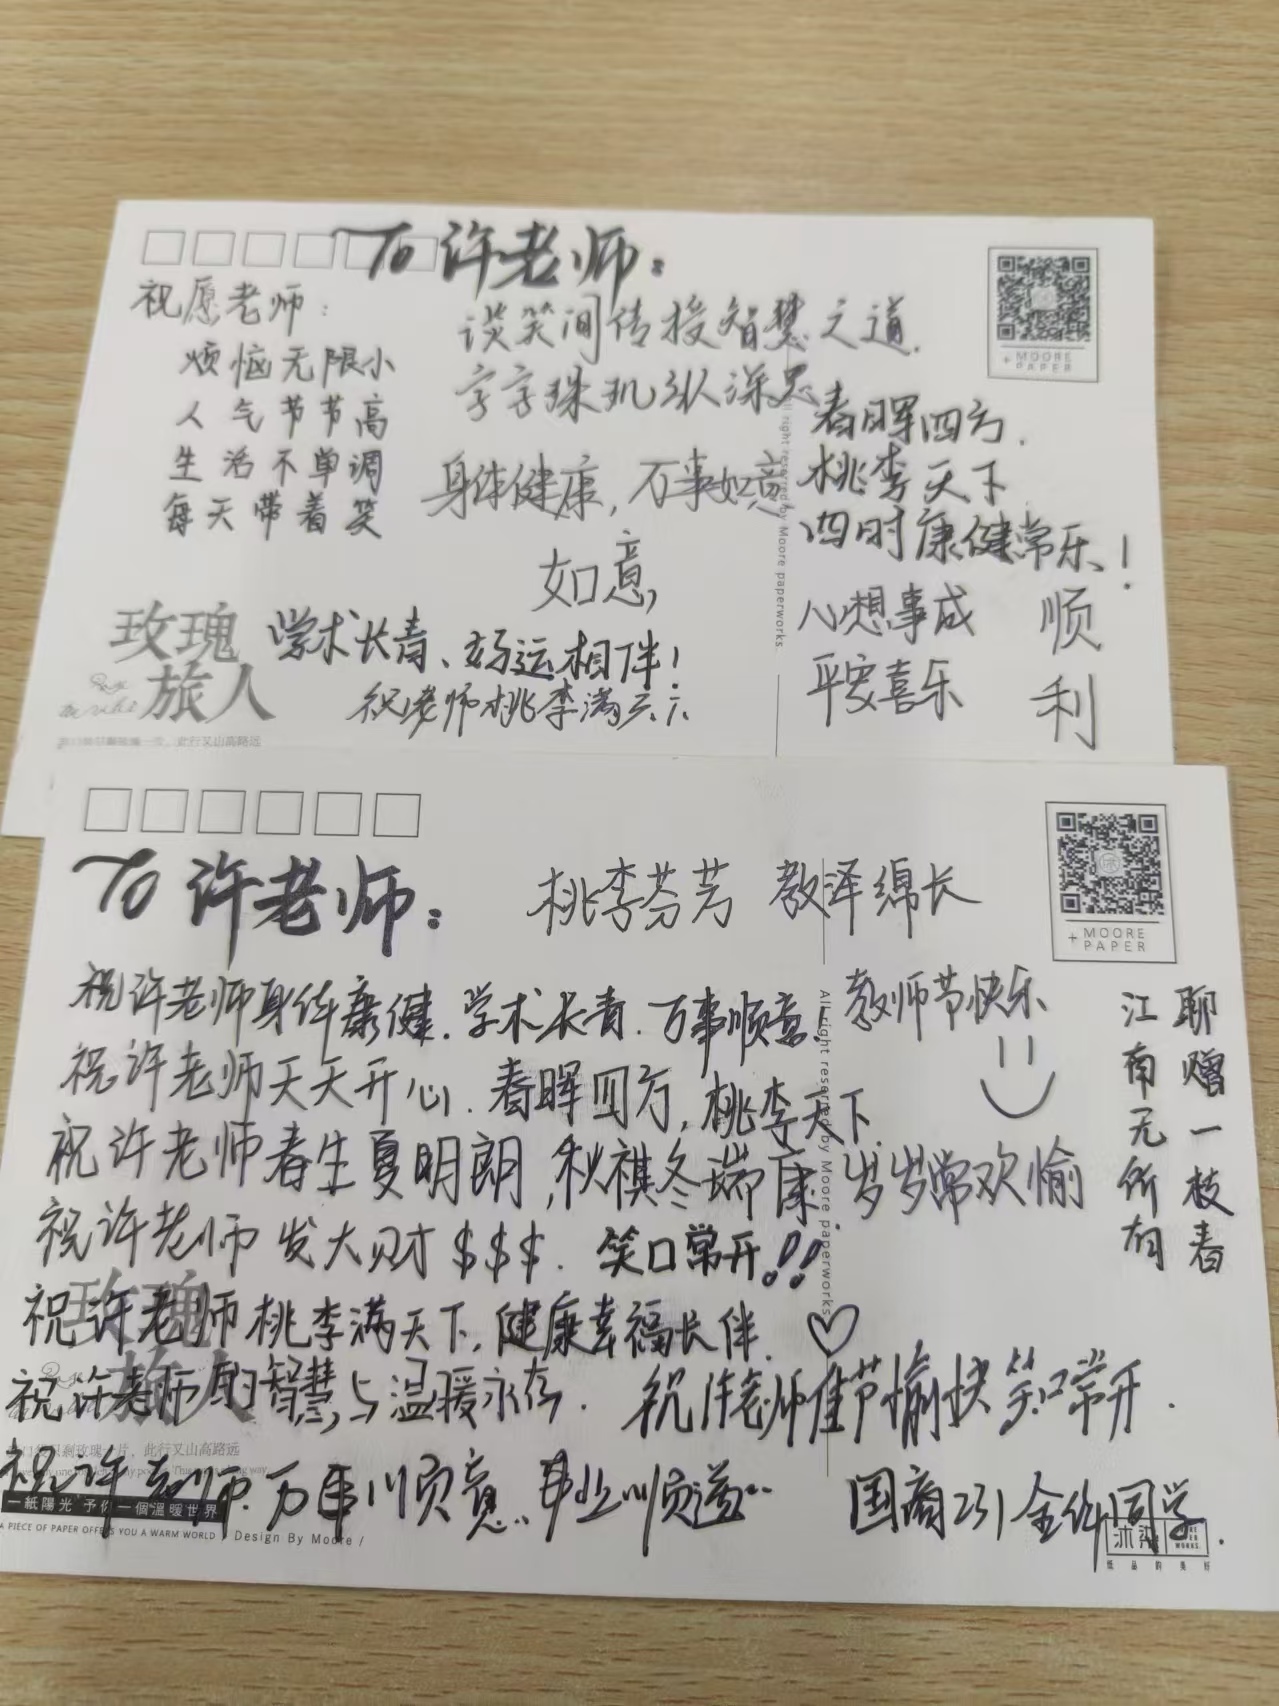 To 许老师：
祝愿老师：
烦恼无限小
人气节节高
生活不单调
每天带着笑
谈笑间传授智慧之道.
字字珠玑纵深思
身体健康，万事如意
如意，
学术长青、好运相伴！
祝老师桃李满天下
春晖四方.
桃李天下
四时康健常乐！
心想事成
平安喜乐
顺利
+ MOORE
PAPER
All right reserved by Moore paperworks.
玫瑰
旅人
此行又山高路远
To 许老师：
桃李芬芳 教泽绵长
祝许老师身体康健. 学术长青. 万事顺意.
教师节快乐
祝许老师天天开心. 春晖四方, 桃李天下.
祝许老师春生夏明朗, 秋祺冬瑞康. 岁岁常欢愉
祝许老师发大财$$$. 笑口常开!!
祝许老师桃李满天下, 健康幸福长伴.
祝许老师的智慧与温暖永存.
祝许老师佳节愉快 笑口常开.
祝许老师. 万事顺意. 事业顺遂
国商231全体同学.
江南无所有
聊赠一枝春
+ MOORE
PAPER
All right reserved by Moore paperworks.
玫瑰
旅人
此行又山高路远
一紙陽光 予你一個溫暖世界
A PIECE OF PAPER OFFERS YOU A WARM WORLD
/ Design By Moore /
纸品的美好